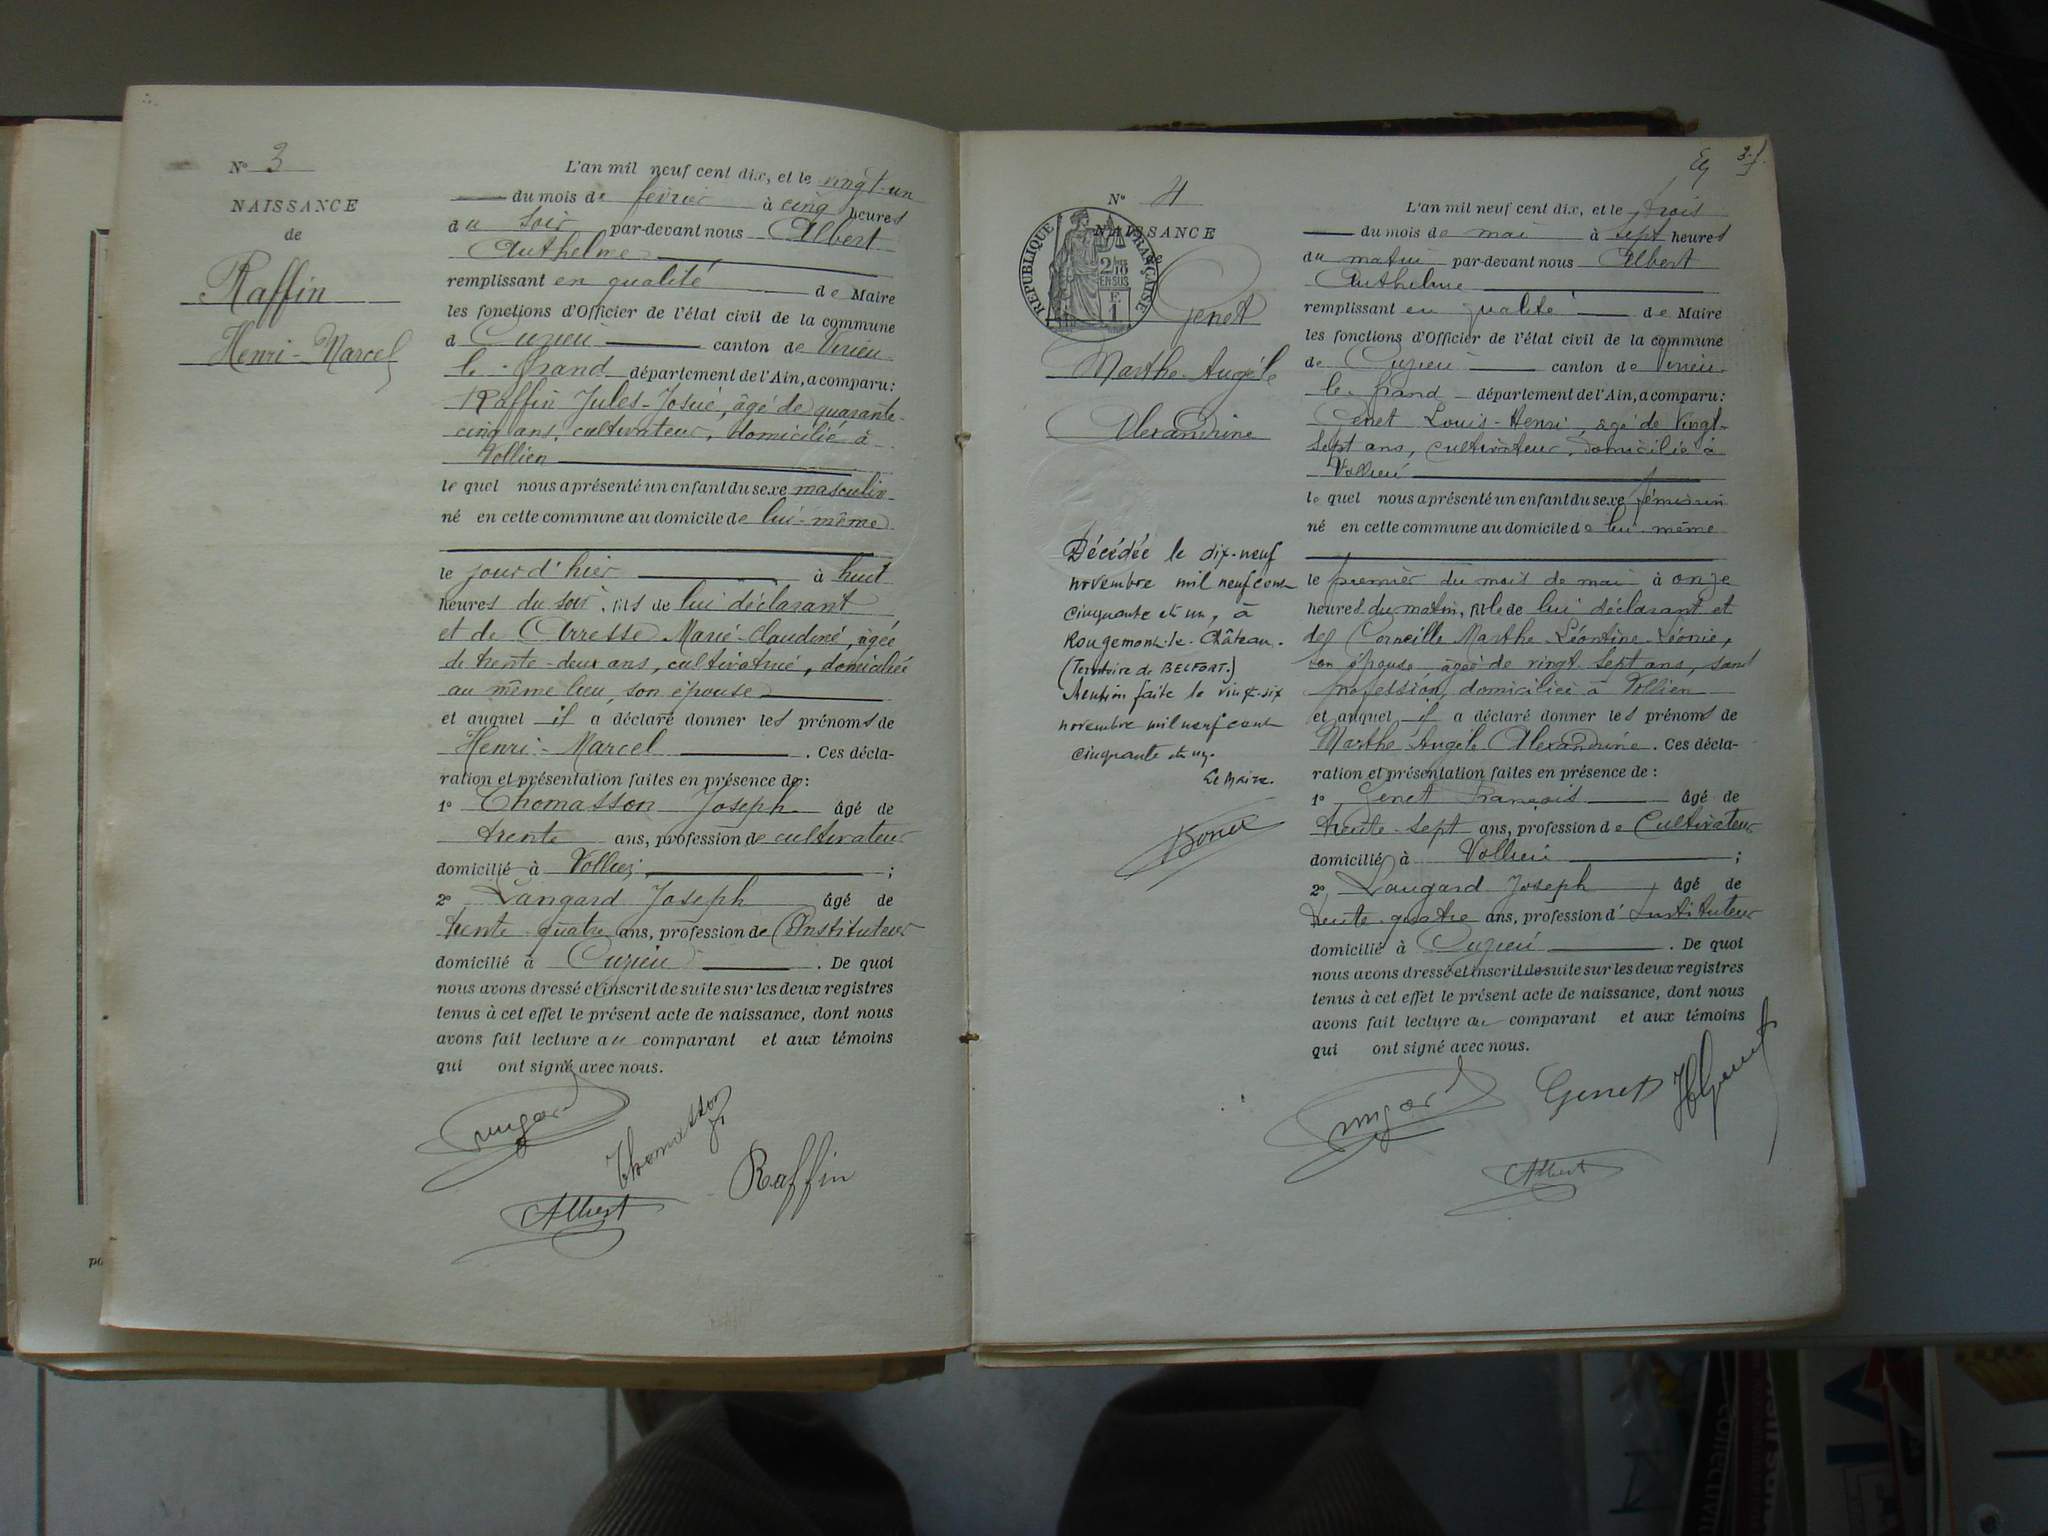 N° 3
NAISSANCE
de
Raffin
Henri-Marcel
L'an mil neuf cent dix, et le vingt-un
du mois de février à cinq heures
du soir par-devant nous Albert
Anthelme
remplissant en qualité de Maire
les fonctions d'Officier de l'état civil de la commune
d Cuzieu canton de Virieu
le Grand département de l'Ain, a comparu:
Raffin Jules-Josué, âgé de quarante-
cinq ans, cultivateur, domicilié à
Vollien
le quel nous a présenté un enfant du sexe masculin
né en cette commune au domicile de lui-même
le jour d'hier à huit
heures du soir, fils de lui déclarant
et de Marie-Claudine, âgée
de trente-deux ans, cultivatrice, domiciliée
au même lieu, son épouse
et auquel il a déclaré donner les prénoms de
Henri-Marcel. Ces décla-
ration et présentation faites en présence de:
1° Thomasson Joseph âgé de
trente ans, profession de cultivateur
domicilié à Vollien;
2° Langard Joseph âgé de
trente-quatre ans, profession de Instituteur
domicilié à Cuzieu. De quoi
nous avons dressé et inscrit de suite sur les deux registres
tenus à cet effet le présent acte de naissance, dont nous
avons fait lecture au comparant et aux témoins
qui ont signé avec nous.
Thomasson
Raffin
Albert
3
N° 4
NAISSANCE
RÉPUBLIQUE FRANÇAISE
2/10
EN SUS
F.
1
Genet
Marthe Angèle
Alexandrine
Décédée le dix-neuf
novembre mil neuf cent
cinquante et un, à
Rougemont-le-Château.
(Territoire de BELFORT.)
Mention faite le vingt-six
novembre mil neuf cent
cinquante et un.
Le Maire.
L'an mil neuf cent dix, et le trois
du mois de mai à sept heures
du matin par-devant nous Albert
Anthelme
remplissant en qualité de Maire
les fonctions d'Officier de l'état civil de la commune
de Cuzieu canton de Virieu
le Grand département de l'Ain, a comparu:
Genet Louis-Henri, âgé de vingt-
sept ans, cultivateur, domicilié à
Vollien
le quel nous a présenté un enfant du sexe féminin
né en cette commune au domicile de lui même
le premier du mois de mai à onze
heures du matin, fille de lui déclarant et
de Corneille Marthe Léontine Léonie,
son épouse, âgée de vingt sept ans, sans
profession, domiciliée à Vollien
et auquel il a déclaré donner les prénoms de
Marthe Angèle Alexandrine. Ces décla-
ration et présentation faites en présence de:
1° Genet François âgé de
trente-sept ans, profession de Cultivateur
domicilié à Vollien;
2° Langard Joseph, âgé de
trente-quatre ans, profession d'Instituteur
domicilié à Cuzieu. De quoi
nous avons dressé et inscrit de suite sur les deux registres
tenus à cet effet le présent acte de naissance, dont nous
avons fait lecture au comparant et aux témoins
qui ont signé avec nous.
Genet
Albert